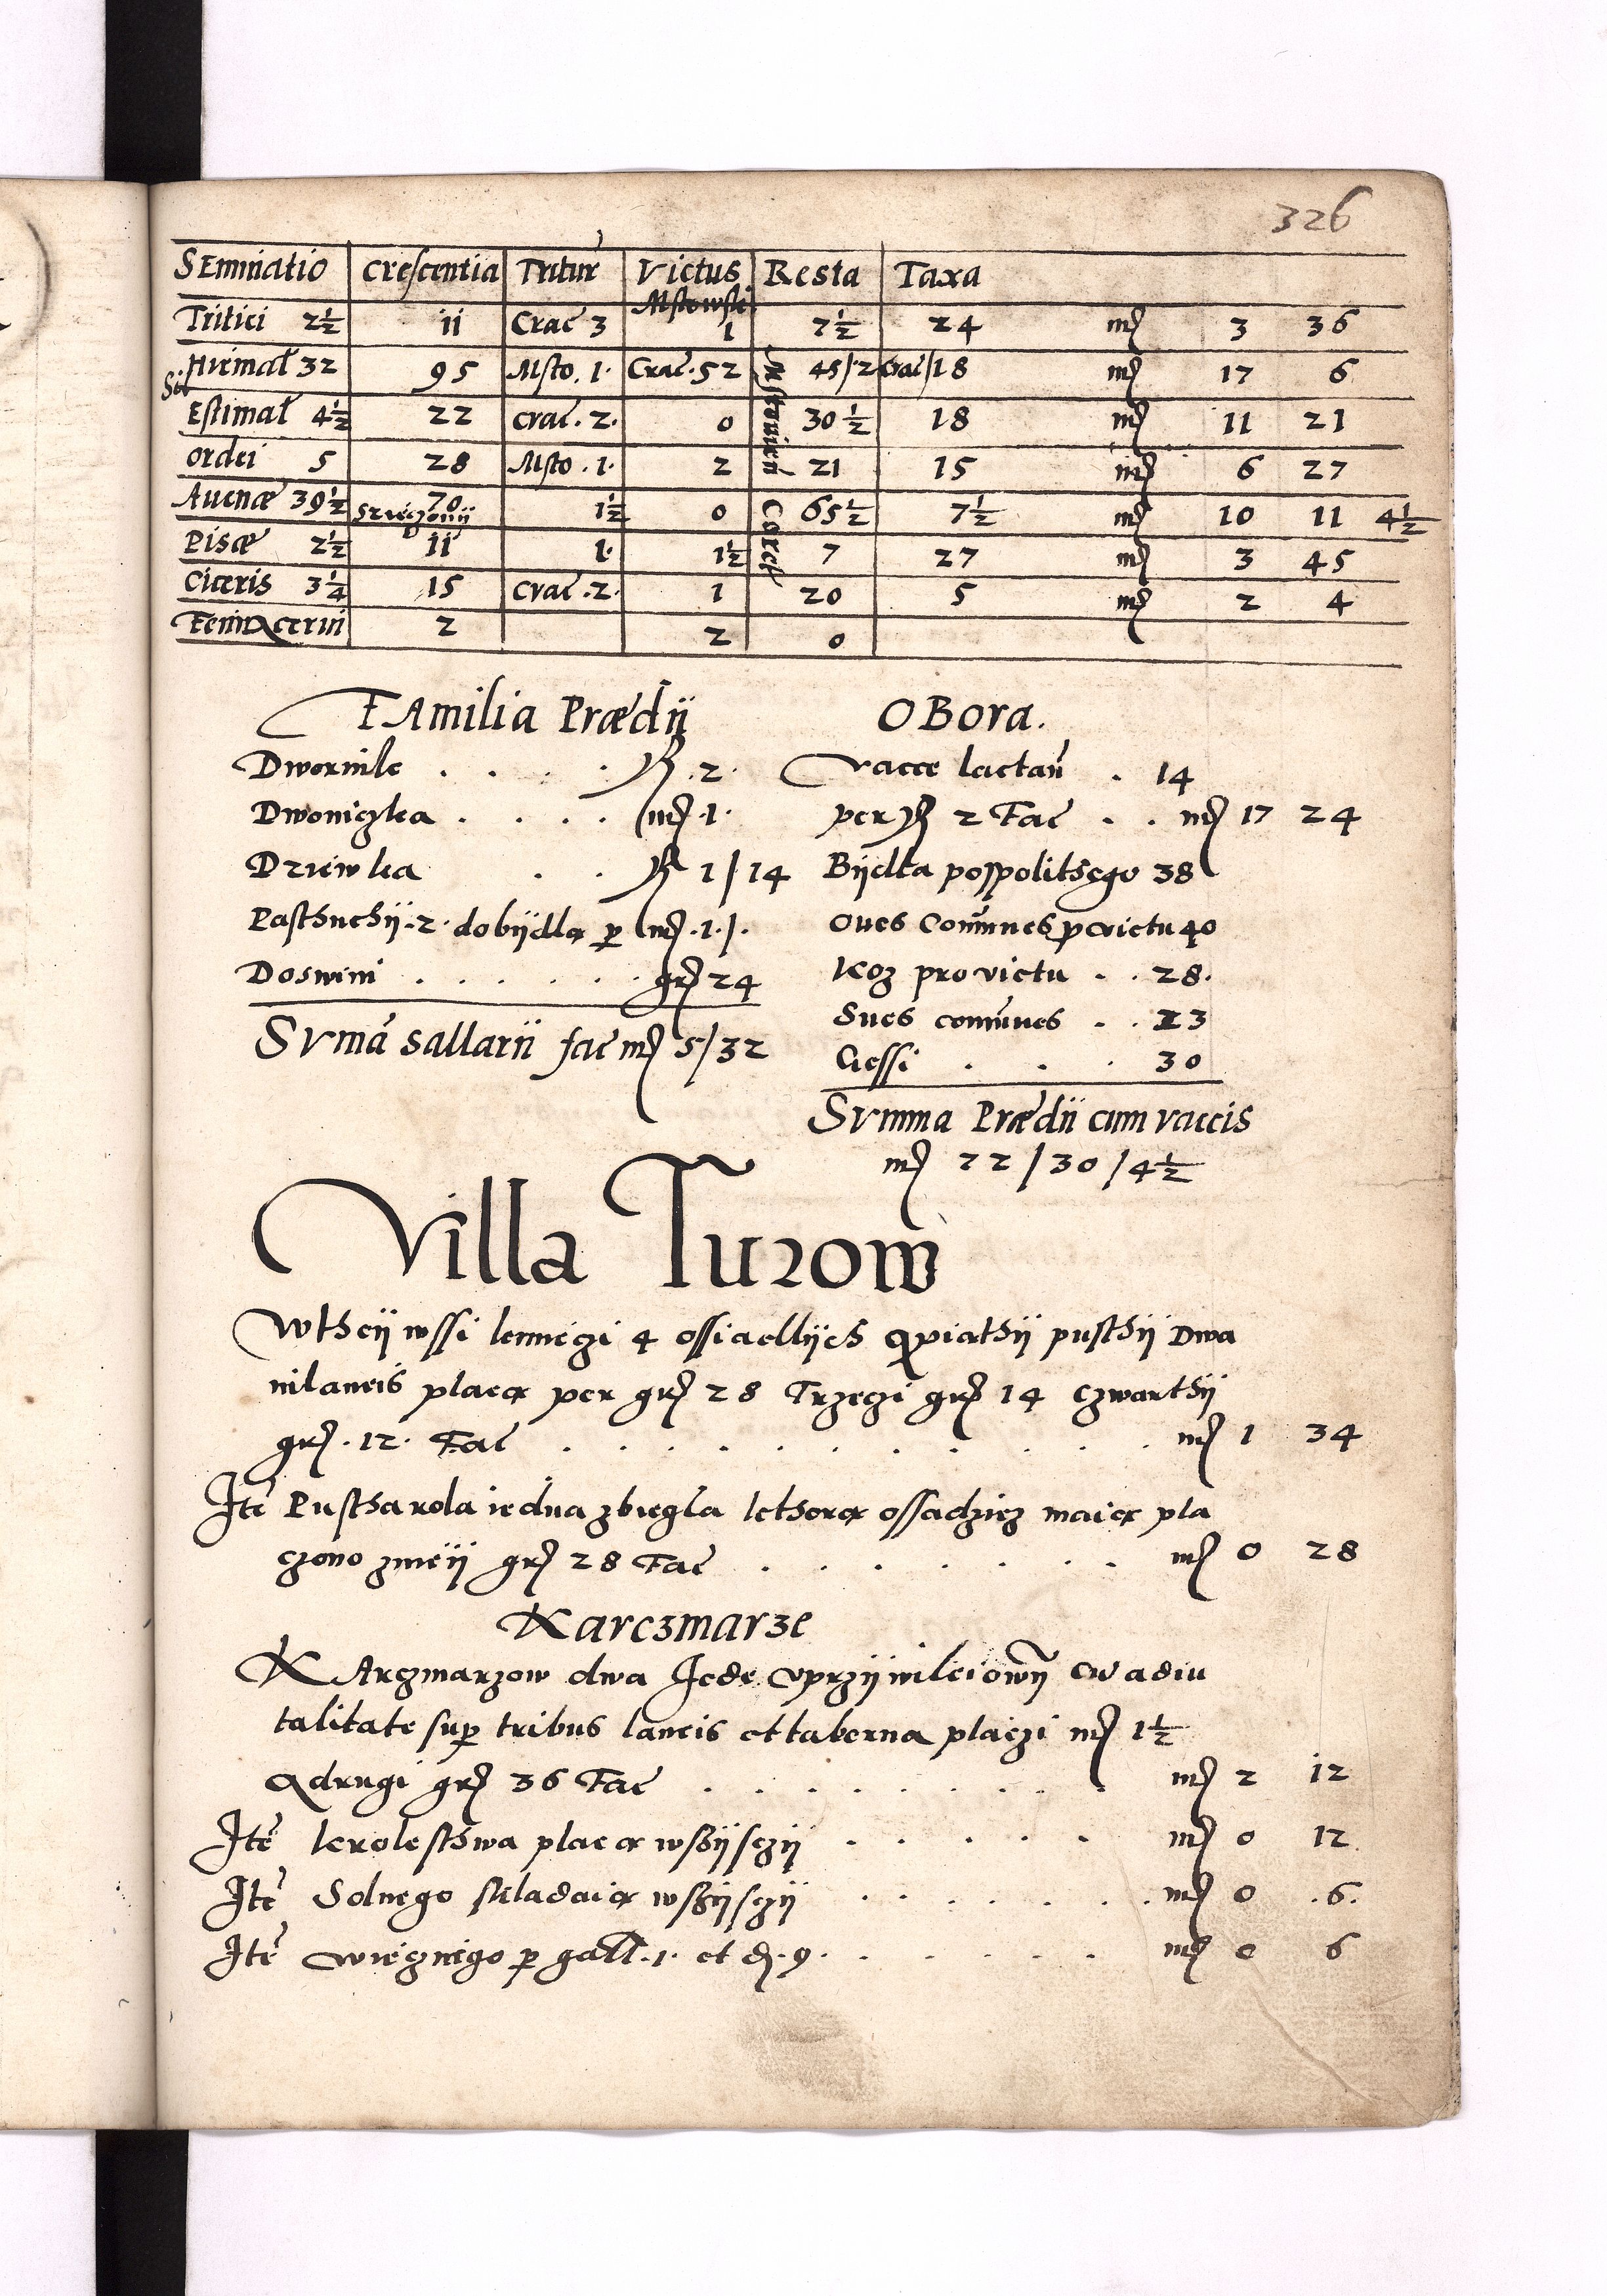 326
SEminatio Crescentia Tritur Victus Resta Taxa
Tritici 2½ 11 Crac 3 Mstowski 1 7½ 24 mr 3 36
Sil. Hiemal 32 95 Msto. 1. Crac. 52 45/2 Crac/18 mr 17 6
Estimal 4½ 22 Crac. 2. 0 30½ 18 mr 11 21
ordei 5 28 Msto. 1. 2 21 15 mr 6 27
Auenæ 39½ 70 1½ 0 65½ 7½ mr 10 11 4½
Pisæ 2½ 11 1. 1½ 7 27 mr 3 45
Ciceris 3¼ 15 Crac. 2. 1 20 5 mr 2 4
Feni Acerui 2 2 0
Caret
FAmilia Prædij
Dwornik . . . . 2.
Dwoniczka . . . . mr. 1.
Dziewka . . 1/14
Pasthuchij. 2. do bijdla per mr. 1./.
Do swini . . . . . . gr 24
SVmā sallarii fac mr 5/32
OBora.
Vacce lactan . 14
per 2 Fac . . mr 17 24
Bijdla pospolithego 38
Oues Comūnes pro victu 40
Koz pro victu . . 28.
Sues comūnes . . 23
Gessi . . . 30
SVmma Prædii cum vaccis
mr 22/30/4½
Villa Turow
Wtheij wssi kmieczi 4 ossiadlijch A piathij pusthij Dwa
nilaneis placa per gr 28 Trzeczi gr 14 czwarthij
gr. 12. Fac . . . . . . . . . mr 1 34
Ite Pustha rola iedna zbiegla kthora ossadzicz maia pla
czono zнieij gr 28 Fac . . . . . . mr 0 28
Karczmarze
KArczmarzow dwa Jede vprzijwileiowny cu aduu
talitate sup tribus laneis et taberna placzi mr 1½
A drugi gr 36 Fac . . . . . . . . mr 2 12
Ite krolesthwa placa wssijsczij . . . . . mr 0 12
Ite Solnego skladaia wssijsczij . . . . . . mr 0 .6.
Ite wiecznego p gall. 1. et d. 9. . . . . . mr 0 6